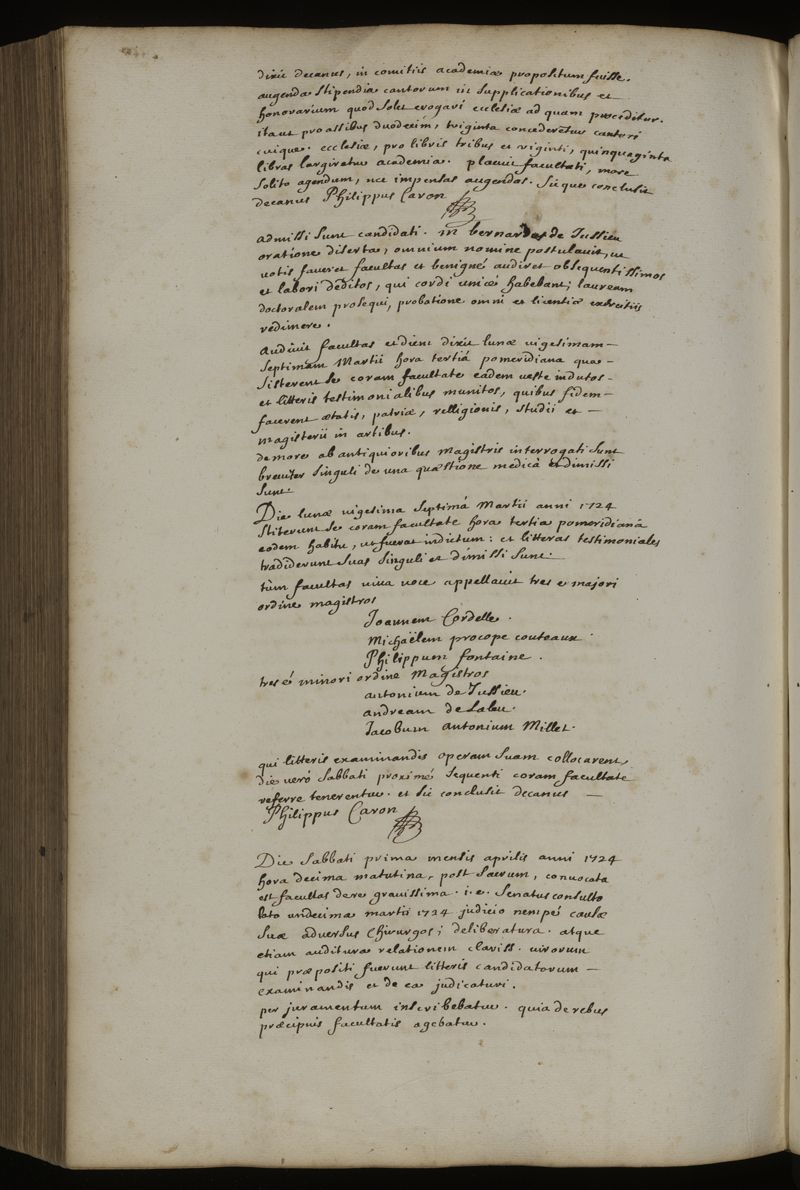 dixit decanus, in comitiis academiæ propositum fuisse.
augenda stipendia cantorum in supplicationibus et
honorarium quod solet erogari ecclesiæ ad quam proceditur.
itaut pro assibus duodecim, triginta concederetur cantori
cuique. ecclesiæ, pro libris tribus et viginti, quinquaginta
libras largiretur academia. placuit facultati, more
solito agendum, nec impensas augendas. sicque conclusit
decanus Philippus Caron
admissi sunt candidati. in bernardus de Jussieu
oratione diserta, omnium nomine postulavit, ut
votis faveret facultas et benigné audiret obsequentissimos
et labori deditos, qui cordi unicé habebant; lauream
doctoralem prosequi, probatione omni et licentiæ exercitiis
redimere.
Audivit facultas et diem dixit lunæ vigesimam-
septimam Martii hora tertiâ pomeridiana qua-
sisterent se coram facultate eadem veste indutos-
et litteris testimonialibus munitos, quibus fidem-
facerent ætatis, patriæ, relligionis, studii et -
magisterii in artibus.
de more ab antiquioribus magistris interrogati sunt
breviter singuli de una quæstione medicâ et dimissi
sunt.
Die lunæ vigesima septimâ Martii anni 1724
stiterunt se coram facultate hora tertia pomeridianâ
eodem habitu, ut fuerat indictum: et litteras testimoniales
tradiderunt suas singuli et dimissi sunt.
tùm facultas viva voce appellavit tres e majori
ordine magistros
Joannem Cordelle.
Michaëlem procope couteaux.
Philippum fontaine.
tres é minori ordine Magistros
antonium de Jussieu.
andream de Laleu.
Jacobum antonium Millet.
qui litteris examinandis operam suam collocarent,
die veró sabbati proximé sequenti coram facultate
referre tenerentur. et sic conclusit decanus -
Philippus Caron
Die sabbati prima mensis aprilis anni 1724
hora decima matutina, post sacrum, convocata
est facultas de re gravissima. i.e. senatus consulto
lato undecima martii 1724 judicio nempé causæ
suæ adversus Chirurgos; deliberatura. atque
etiam auditura relationem clariss. virorum
qui præpositi fuerunt litteris candidatorum -
examinandis et de ea judicaturi.
per juramentum inscribebatur. quia de rebus
præcipuis facultatis agebatur.